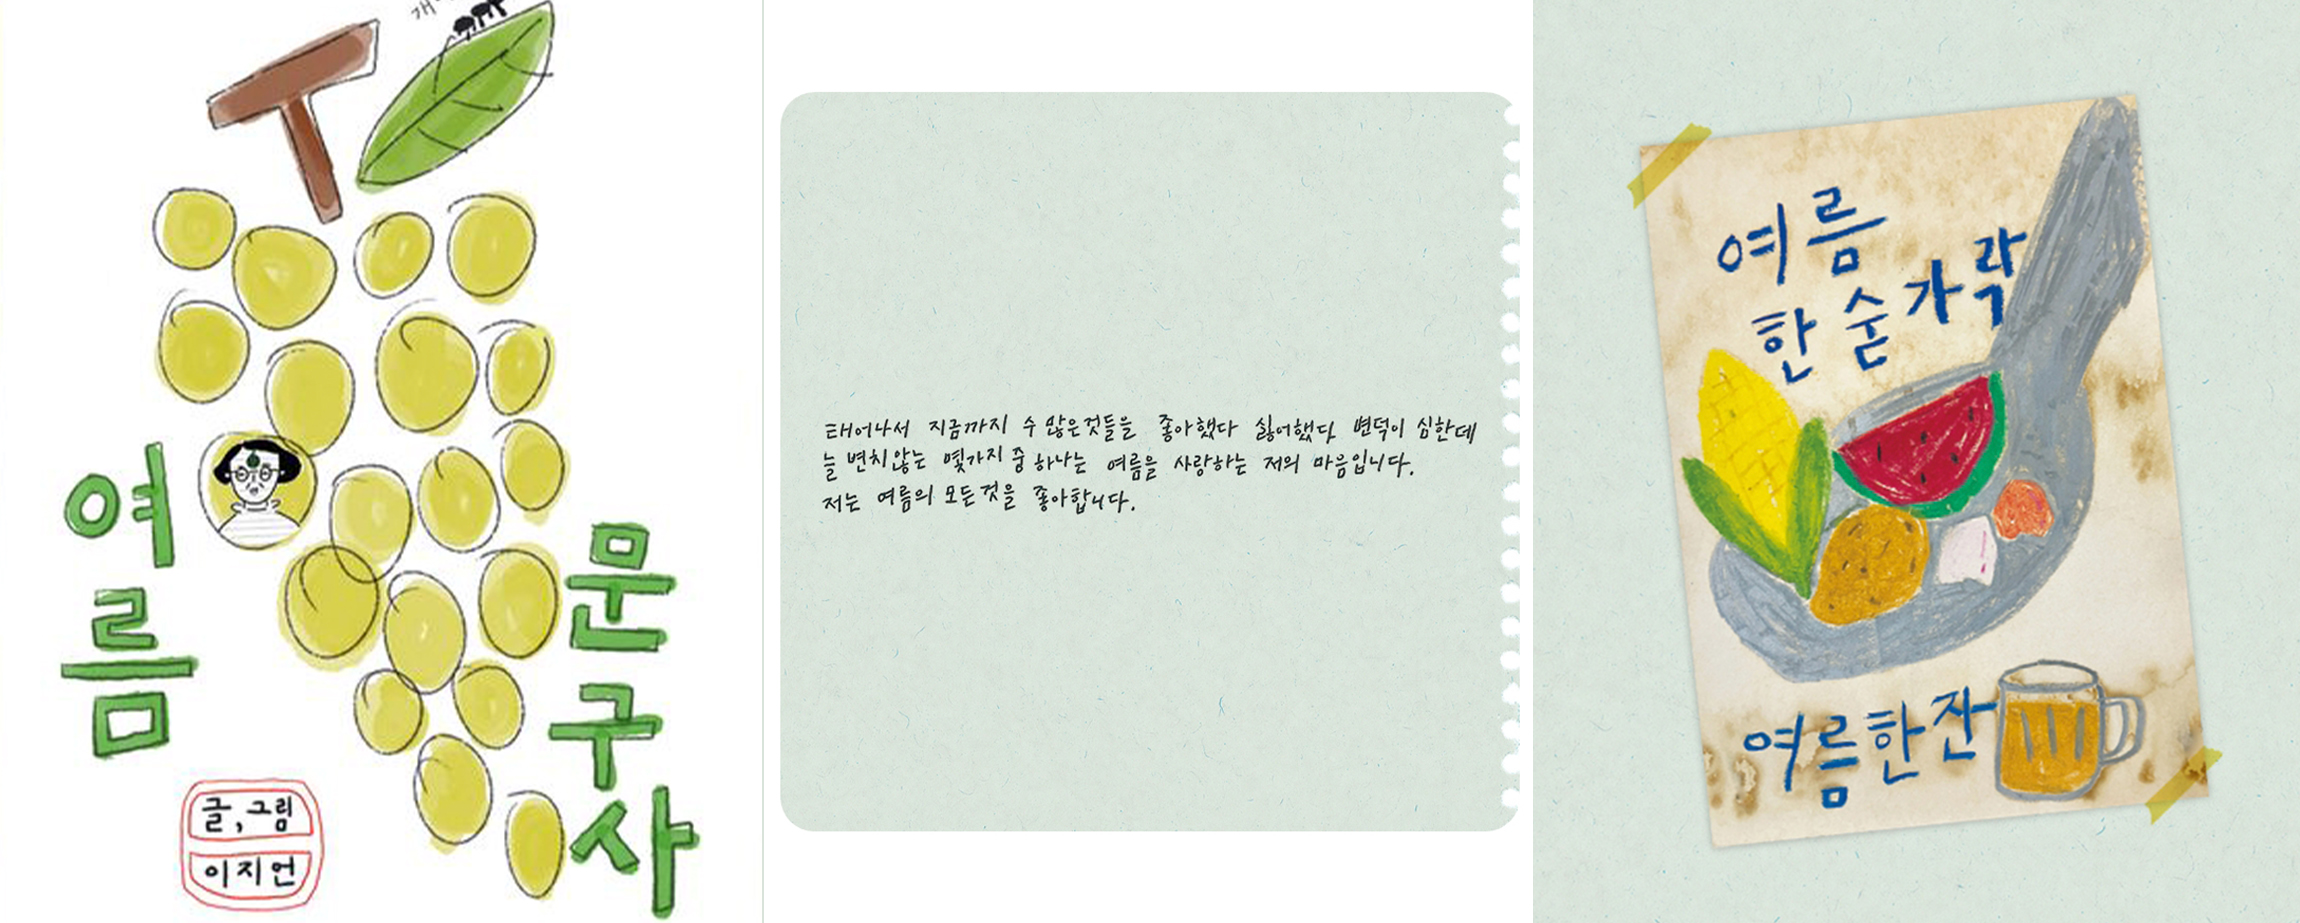 여름
문구사
글,그림
이지언
태어나서 지금까지 수 많은것들을 좋아했다 싫어했다 변덕이 심한데
늘 변치않는 몇가지 중 하나는 여름을 사랑하는 저의 마음입니다.
저는 여름의 모든것을 좋아합니다.
여름
한 숟가락
여름한잔